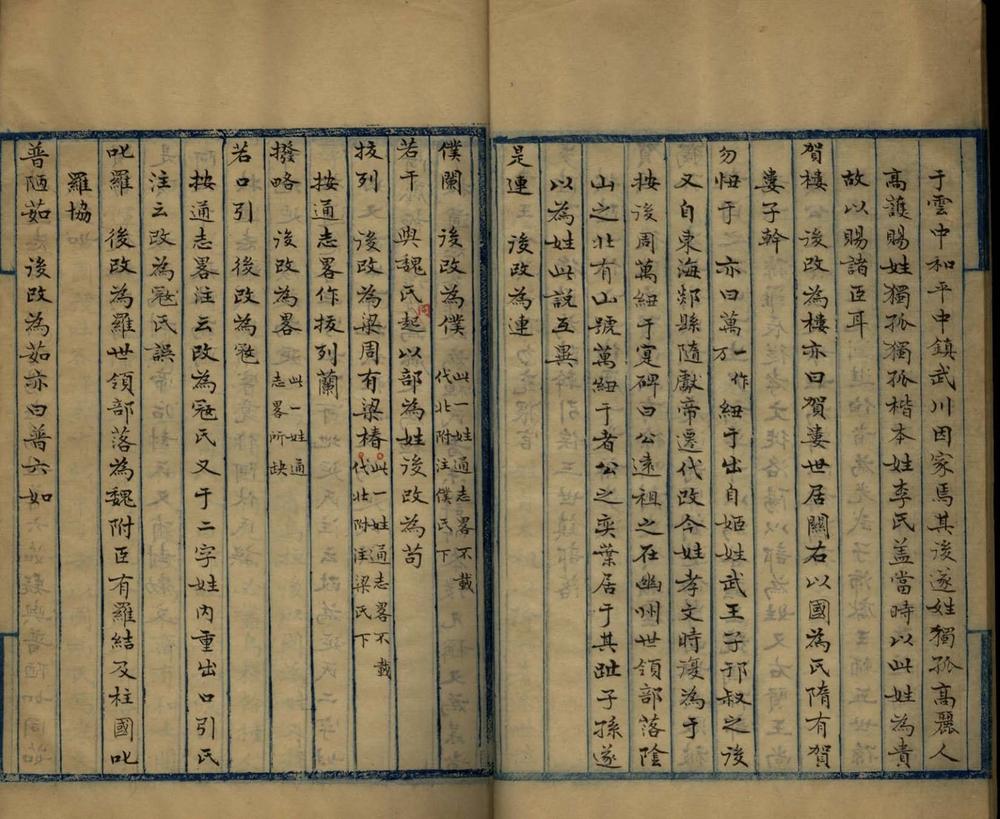 于雲中和平中鎮武川因家焉其後遂姓獨孤高麗人
高護賜姓獨孤獨孤楷本姓李氏盖當時以此姓為貴
故以賜諸臣耳
賀樓　後改為樓亦曰賀婁世居關右以國為氏隋有賀
婁子幹
勿忸于　亦曰萬一作万紐于出自姬姓武王子邘叔之後
又自東海郯縣隨獻帝遷代改今姓孝文時復為于
按後周萬紐于寔碑曰公遠祖之在幽州世領部落陰
山之北有山號萬紐于者公之奕葉居于其趾子孫遂
以為姓此説互異
是連　後改為連
僕闌　後改為僕此一姓通志畧不載代北附注僕氏下
若干　與魏氏同起以部為姓後改為苟
拔列　後改為梁周有梁椿此一姓通志畧不載代北附注梁氏下
按通志畧作拔列蘭
撥略　後改為畧此一姓通志畧所缺
若口引　後改為寇
按通志畧注云改為寇氏又于二字姓内重出口引氏
注云改為寇氏誤
叱羅　後改為羅世領部落為魏附臣有羅結及柱國叱
羅協
普陋茹　後改為茹亦曰普六如